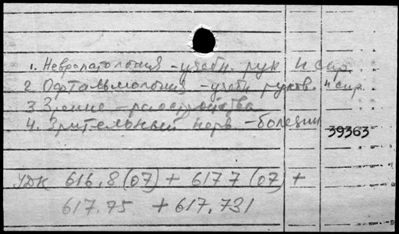 1. Невропатология - учебн. рук и спр.
2 Офтальмология - учебн руков. и спр.
3 Зрение - расстройства
4. Зрительный нерв - болезни
39363
УДК 616,8(07) + 617 7(07) +
617.75 + 617.731